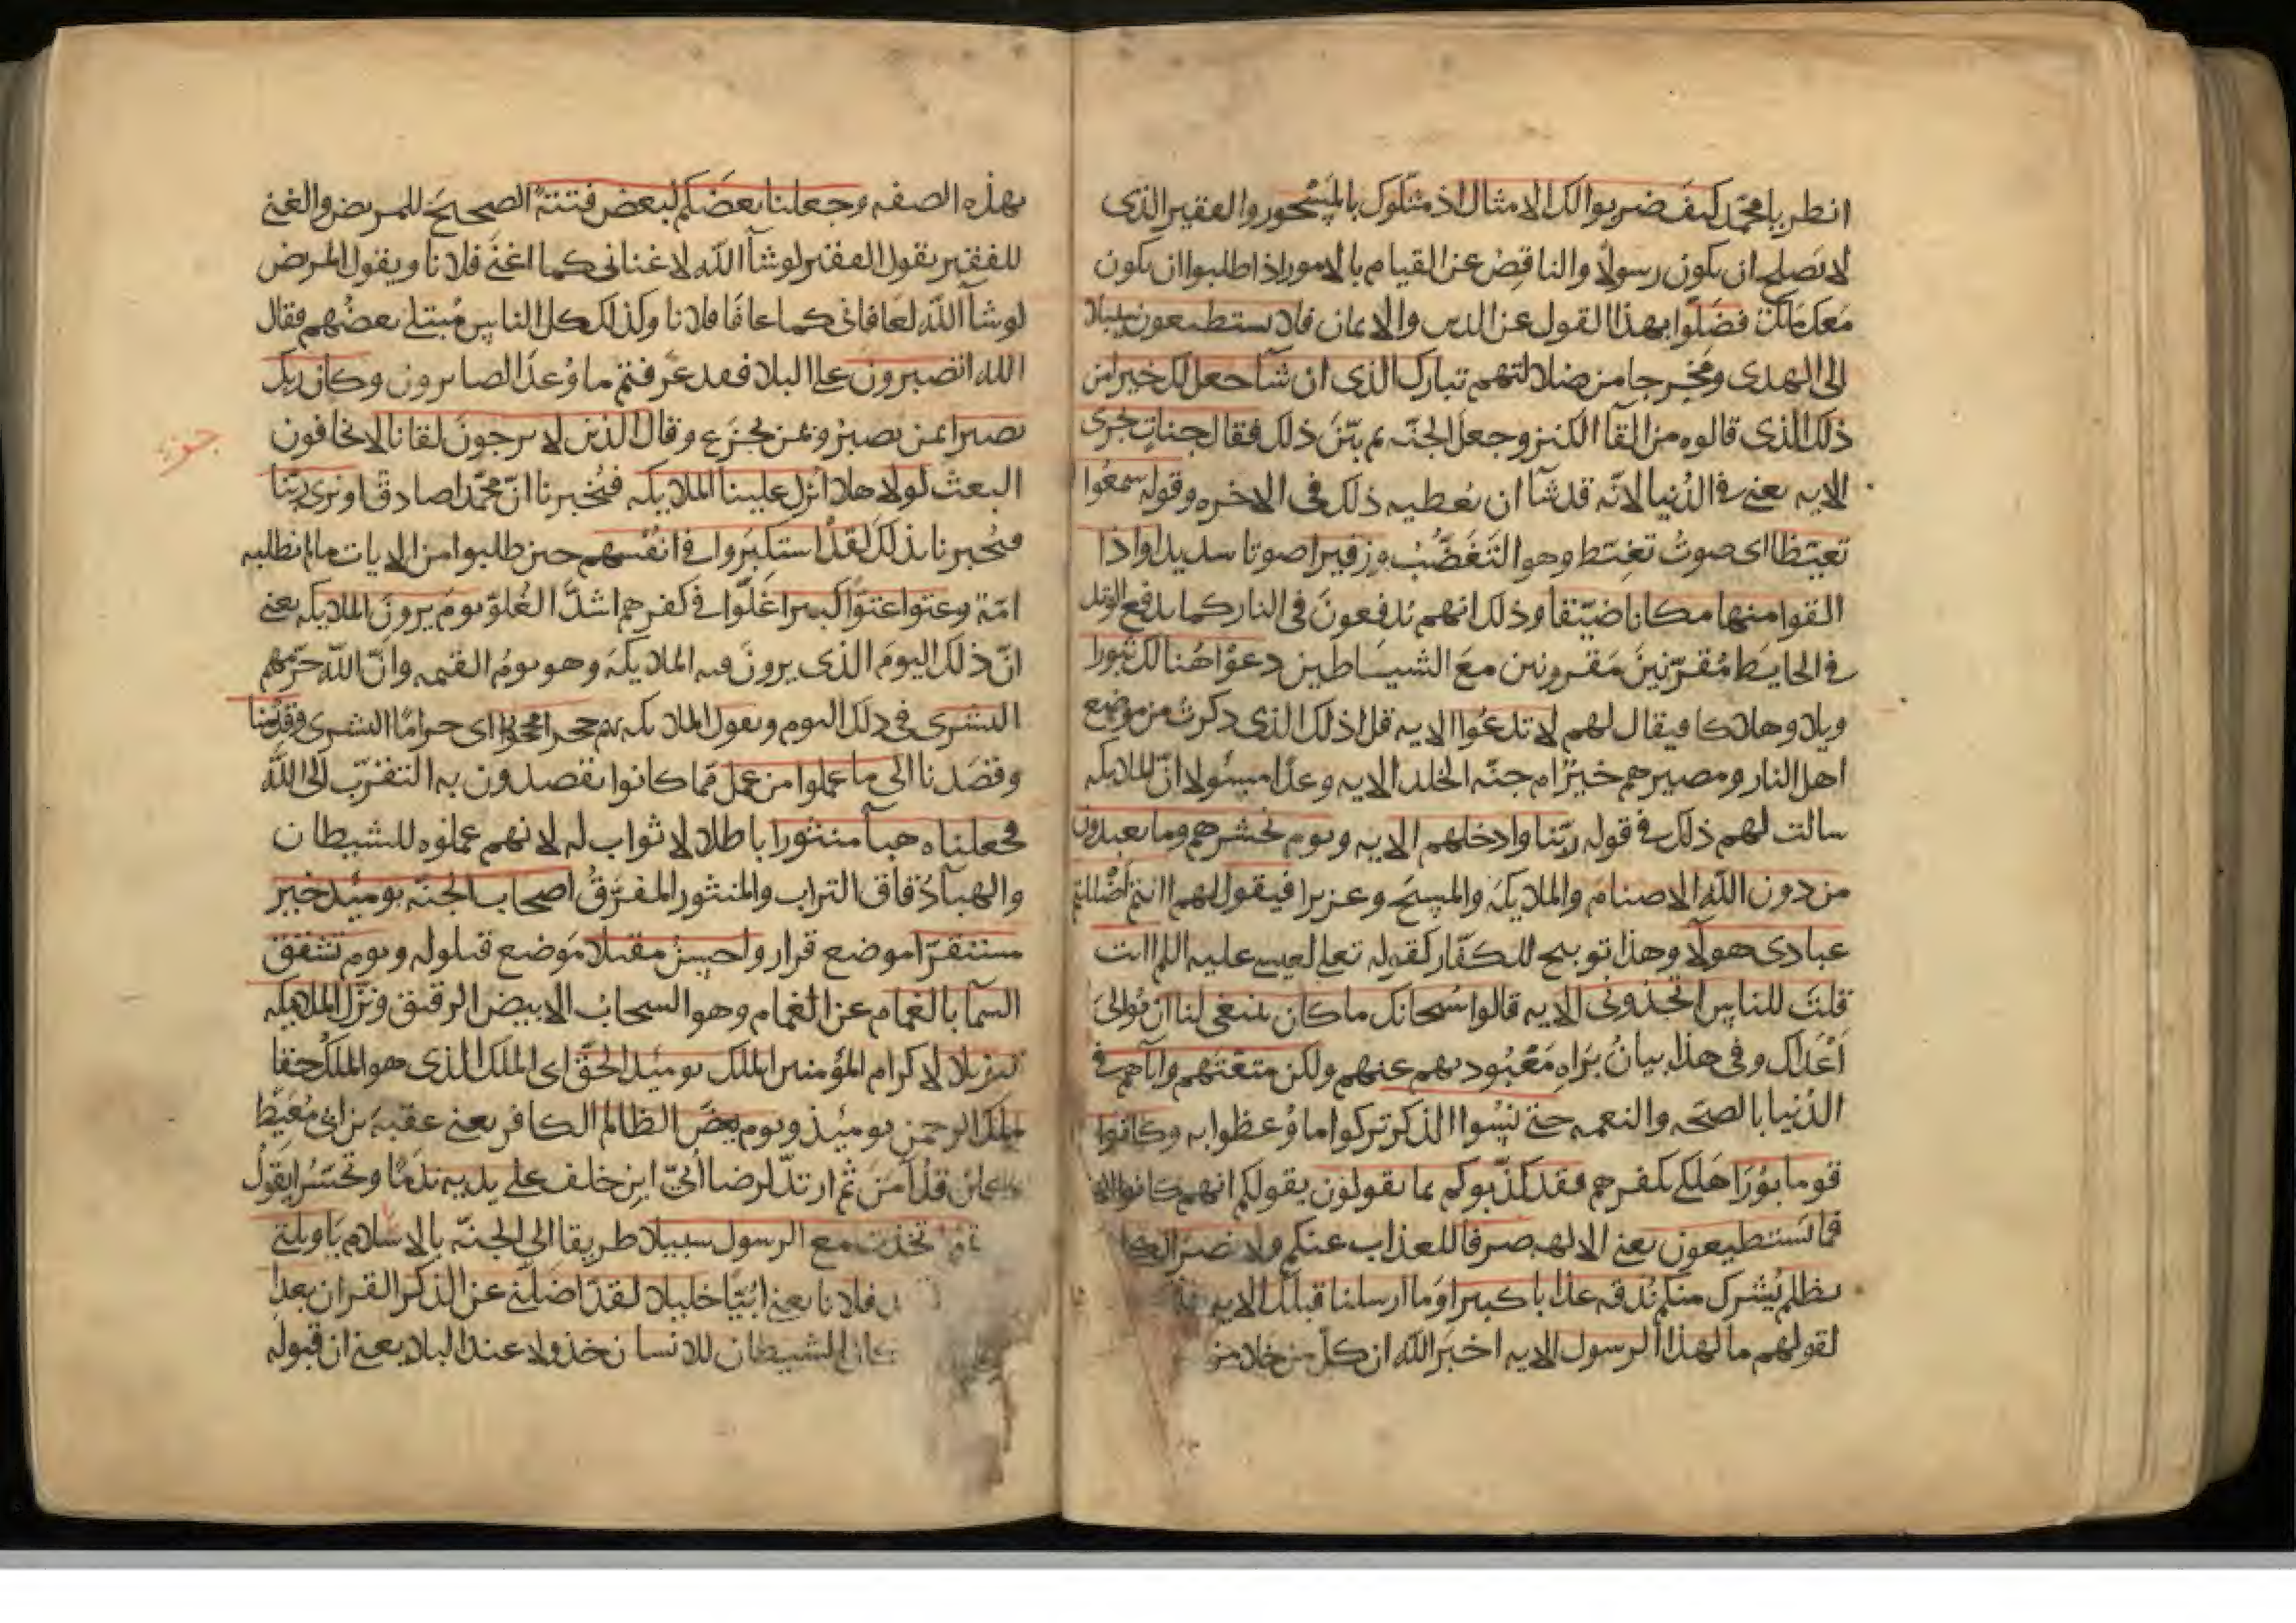 انظر يا محمد كيف ضربوا لك الامثال اذ مثلوك بالمسحور والفقير الذى
لا يصلح ان يكون رسولا والناقص عن القيام بالامور اذ اطلبوا ان يكون
معك ملك فضلوا بهذا القول عن الدين والايمان فلا يستطيعون سبيلا
الى الهدى ومخرجا من ضلالتهم تبارك الذى ان شآ جعل لك خيرا من
ذلك الذى قالوه من القآ الكنز وجعل الجنه ثم بيّن ذلك فقال جنات تجرى
الايه يعنى فى الدُنيا لانّه قد شآ ان يُعطيه ذلك فى الاخره وقوله سمعُوا
تغيّظا اى صوت تغيّظ وهو التَغَضُّبُ وزفيرا صوتا شديدا واذا
القوا منها مكانا ضيّقا وذلك انهم يُدفعونَ فى النار كما يدفع الوتد
فى الحايط مُقرّنينَ مَقرونين معَ الشيَاطين دعوا هُنالك ثبورا
ويلا وهلاكا فيقال لهم لا تدعُوا الايه قل اذلك الذى ذكرتُ من موضع
اهل النار ومصيرهم خيرٌ ام جنّه الخلد الايه وعدًا مسئولا انّ الملايكه
سالت لهم ذلك فى قوله ربّنا وادخلهم الايه ويوم نحشرهم وما يعبدون
من دون الله الاصنام والملايكة والمسيح وعزيرا فيقول لهم اانتم اضللتم
عبادى هولآ وهذا توبيخ للكفّار كقوله تعلى لعيسى عليه السلم اانت
قلتَ للناس اتخذونى الايه قالوا سُبحانك ما كان ينبغى لنا ان نُوالىَ
اَعْدآك وفى هذا بيانُ بَرآهِ مَعْبُوديهم عنهم ولكن متّعتهم وابآهم فى
الدُنيا بالصحّه والنعمه حتى نسُوا الذكر تركوا ما وُعظوا به وكانوا
قوما بُورًا هَلكى بكفرهم فقد كذّبوكم بما تقولون بقولكم انهم كانوا
فما تستطيعون يعنى الالهه صرفا للعذاب عنكم ولا نصرا لكم
يظلم يُشرك منكم نُذقه عذابا كبيرا وَما ارسلنا قبلك الايه
لقولهم ما لهذا الرسول الايه اخبَر الله ان كلّ من خلا من
بهذه الصفه وجعلنا بعضَكم لبعض فتنةً الصحيحَ للمريض والغنى
للفقير يقول الفقير لو شآ الله لاغنانى كما اغنى فلانا ويقول المريض
لو شآ الله لعافانى كما عافا فلانا وكذلك كل الناس مُبتلى بعضُهم فقال
الله اتصبرون على البلا فقد عرّفتم ما وُعدَ الصابرون وكان ربّك
بصيرا بمن يصبرُ وبمن يجزَع وقال الذين لا يرجونَ لقانا لا يخافون
البعث لولا هلا انزل علينا الملايكه فتُخبرنا انّ محمّدا صادق او نرى ربّنا
فيُخبرنا بذلك لقد استكبَروا فى انفُسهم حين طلبوا من الايات مالم تطلبه
امّة وعتوا عتوّا كبيرا غلَّوا فى كفرهم اشدَّ الغُلوّ يومَ يرونَ الملايكه يعنى
انّ ذلك اليومَ الذى يرونَ فيه الملايكةَ وهو يومُ القيمه وانّ الله حرّمهم
البشرى فى ذلك اليوم ويقول الملايكه لهم حجرا محجورا اى حرامًا البشرى وقدّمنا
وقصَدنا الى ما عملوا من عمل ممّا كانوا يقصدون به التقرّب الى الله
فجعلناه هبآ منثورا باطلا لا ثواب له لانهم عملوه للشيطان
والهبآ دُقاق التراب والمنثور المفرّقُ اصحاب الجنّه يوميذ خير
مستقرّا موضع قرار واحسنُ مقيلا موضع قيلوله ويوم تشقق
السّمآ بالغمام عن الغمام وهو السحاب الابيض الرقيق ونزّل الملايكه
تنزيلا لاكرام المؤمنين الملك يوميذ الحقّ اى الملك الذى هو الملك حقا
ملك الرحمن يوميُذ ويوم يعضّ الظالم الكافر يعنى عقبةَ بن ابى مُعَيط
كان قد آمَنَ ثم ارتدّ لرضا اُبىّ ابن خلف على يديه ندمًا وتحسّرا يقول
اتخذت مع الرسول سبيلا طريقا الى الجنّه بالاسلام يا ويلتى
فلانا يعنى اُبَيّا خليلا لقد اضلّنى عن الذكر القران بعد اذ
كان الشيطان للانسان خذولا عند البلا يعنى ان قبوله